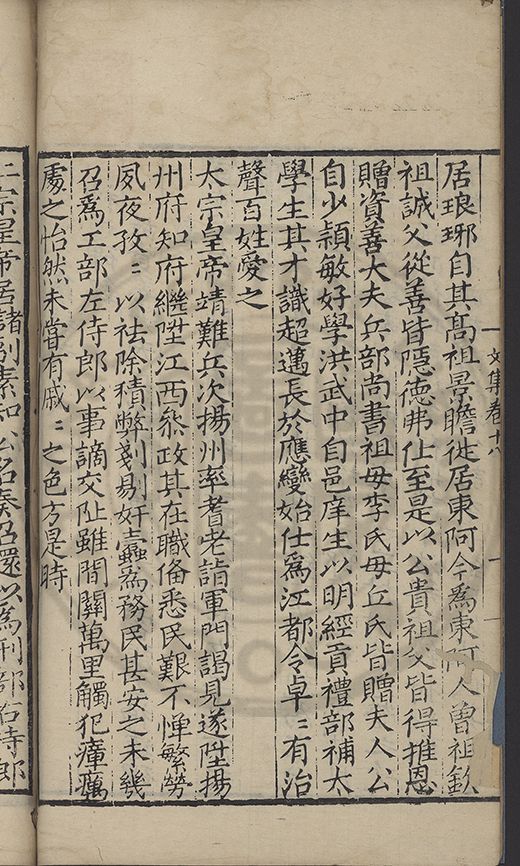 文集卷十八
居琅琊自其髙祖景瞻徙居東阿今爲東阿人曾祖欽
祖誠父從善皆隱德弗仕至是以公貴祖父皆得推恩
贈資善大夫兵部尚書祖母李氏母丘氏皆贈夫人公
自少穎敏好學洪武中自邑庠生以明經貢禮部補太
學生其才識超邁長於應變始仕爲江都令卓〻有治
聲百姓愛之
太宗皇帝靖難兵次揚州率耆老詣軍門謁見遂陞揚
州府知府繼陞江西叅政其在職俻悉民艱不惮繁勞
夙夜孜〻以祛除積弊剗剔奸蠹爲務民甚安之未幾
召爲工部左侍郎以事謫交阯雖間關萬里觸犯瘴癘
處之怡然未嘗有戚〻之色方是時
仁宗皇帝居諸副素知公名奏召還以爲刑部右侍郎